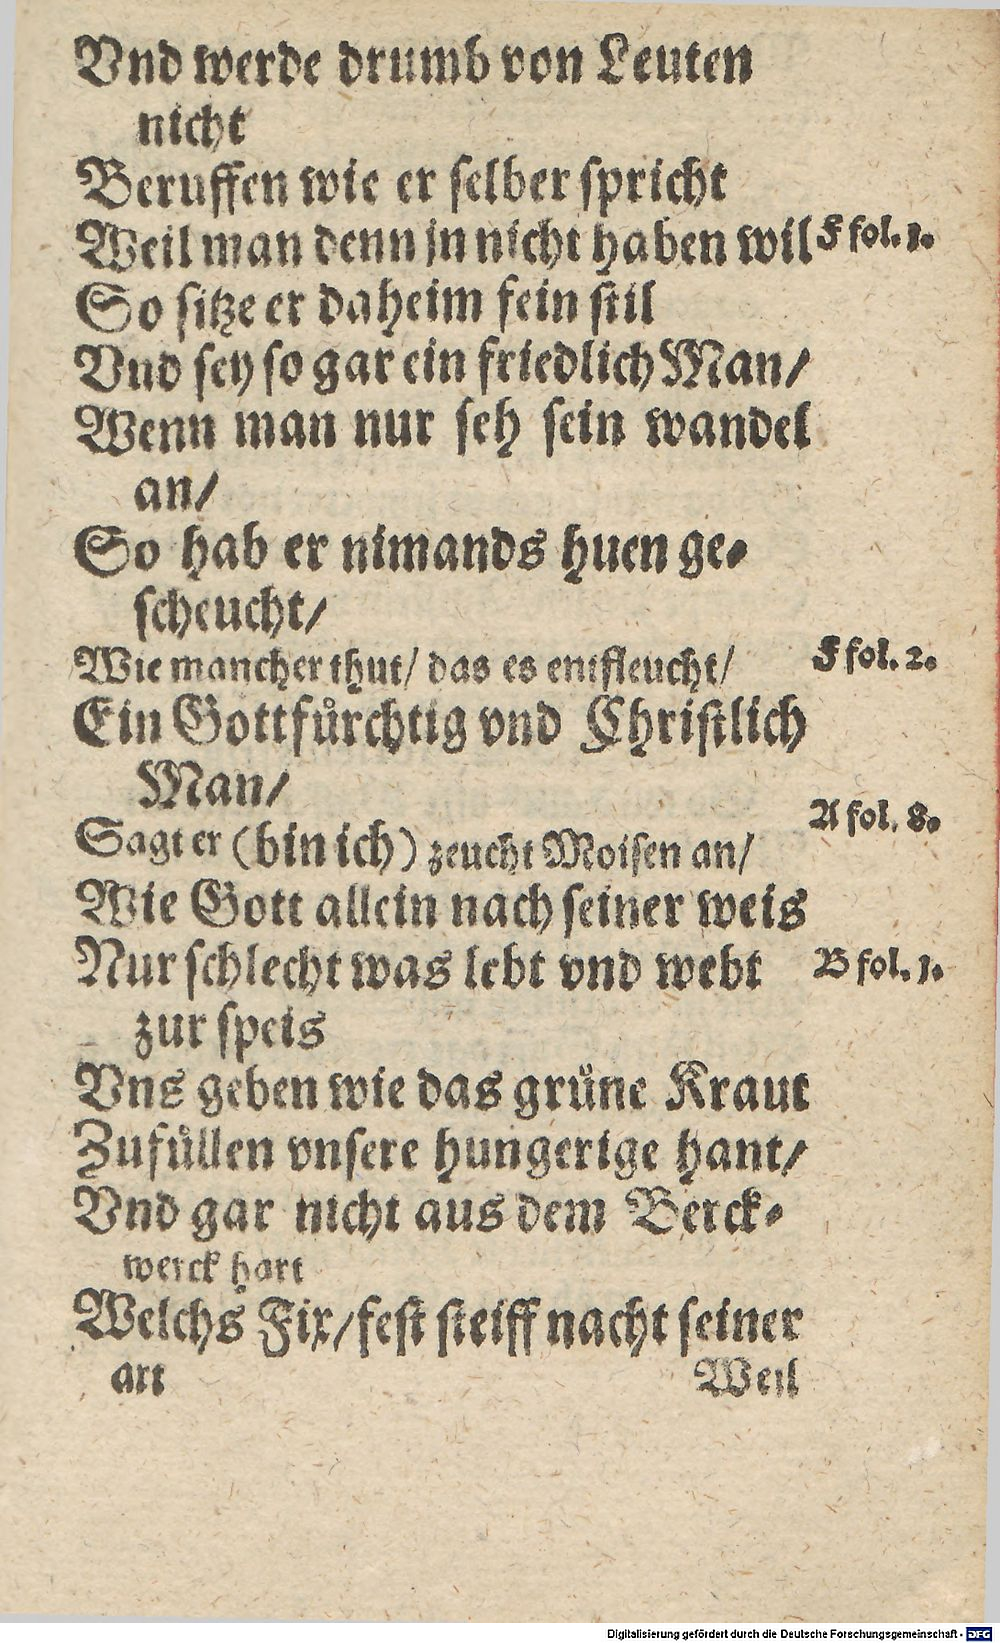 Vnd werde drumb von Leuten
nicht
Beruffen wie er selber spricht
Weil man denn jn nicht haben wil F fol. 1.
So sitze er daheim fein stil
Vnd sey so gar ein friedlich Man/
Wenn man nur seh sein wandel
an/
So hab er nimands huen ge-
scheucht/
Wie mancher thut/ das es entfleucht/ F fol. 2.
Ein Gottfuͤrchtig vnd Christlich
Man/
Sagt er (bin ich) zeucht Moisen an/ A fol. 8.
Wie Gott allein nach seiner weis
Nur schlecht was lebt vnd webt B fol. 1.
zur speis
Vns geben wie das gruͤne Kraut
Zufuͤllen vnsere hungerige hant/
Vnd gar nicht aus dem Berck-
werck hart
Welchs Fix/ fest steiff nacht seiner
art Weil
Digitalisierung gefördert durch die Deutsche Forschungsgemeinschaft - DFG